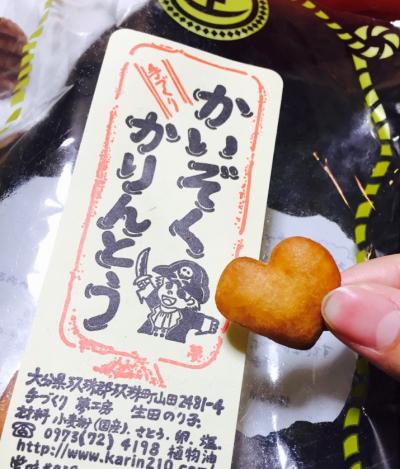 手づくり
かいぞく
かりんとう
大分県玖珠郡玖珠町山田2481-4
手づくり 夢工房 生田のり子
材料 小麦粉(国産)、さとう、卵、塩、
☎ 0973(72)4198 植物油
http://www.karin210.com/
賞味